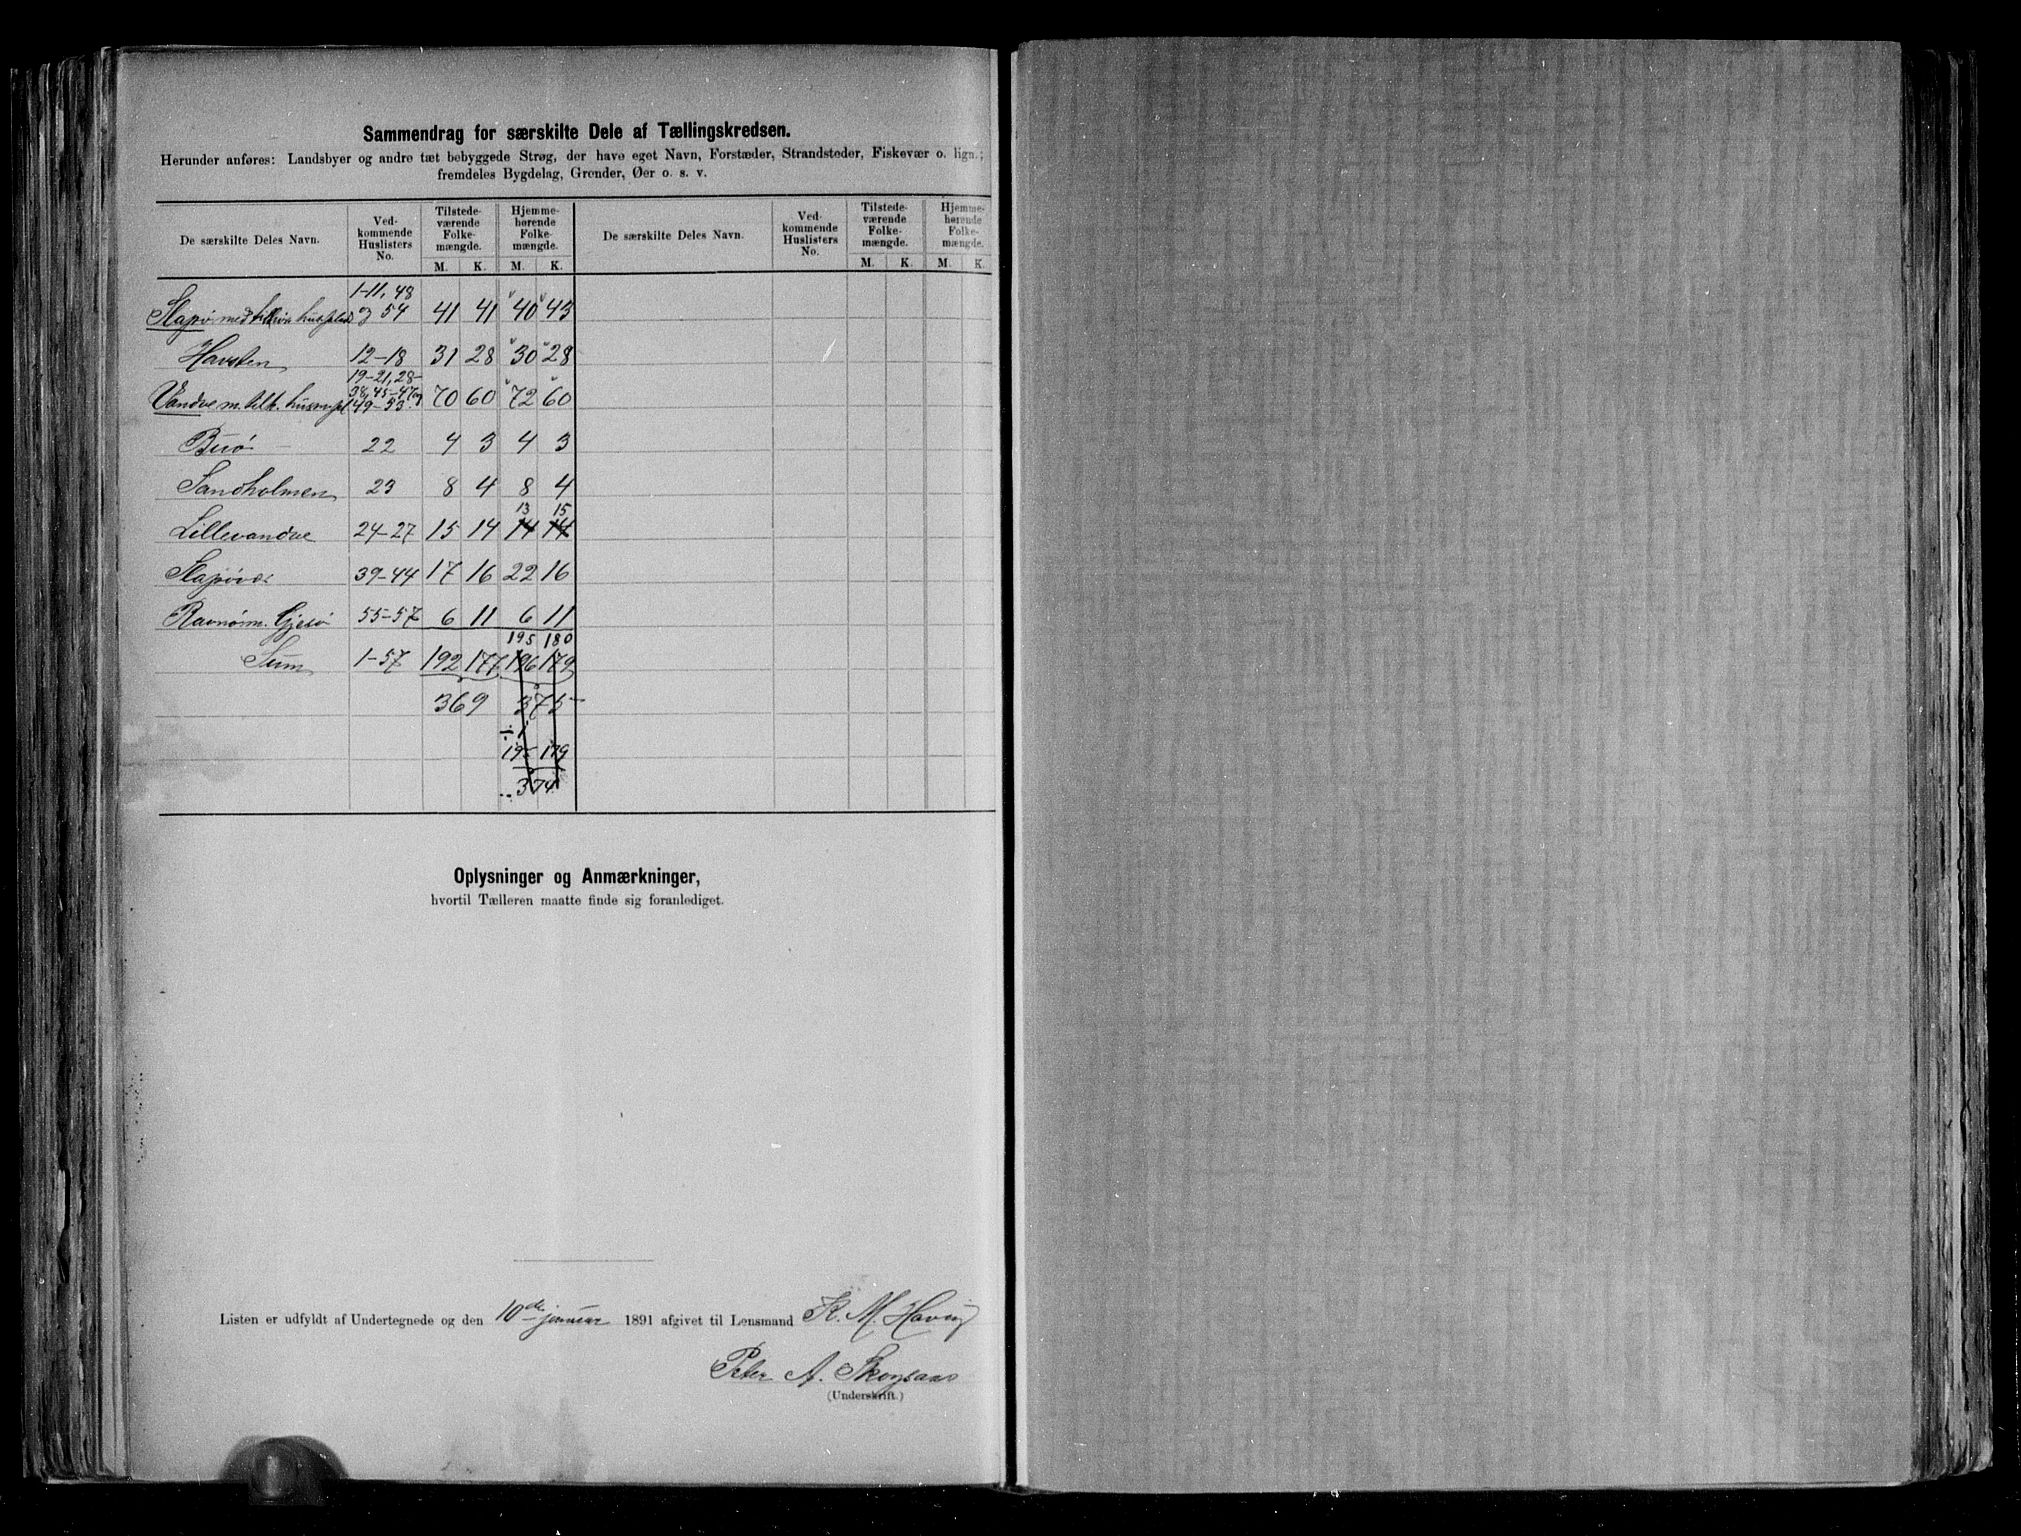 Sammendrag for særskilte Dele af Tællingskredsen.
Herunder anføres: Landsbyer og andre tæt bebyggede Strøg, der have eget Navn, Forstæder, Strandsteder, Fiskevær o. lign.;
fremdeles Bygdelag, Grender, Øer o. s. v.
De særskilte Deles Navn. Ved-kommende Huslisters No. Tilstede-værende Folke-mængde. Hjemme-hørende Folke-mængde. De særskilte Deles Navn. Ved-kommende Huslisters No. Tilstede-værende Folke-mængde. Hjemme-hørende Folke-mængde.
M. K. M. K. M. K. M. K.
1-11, 48
Slapø med og 54 41 41 40 43
Havsten 12-18 31 28 30 28
19-21, 28-
38, 45-47 og
Vandve m. tilh. husmpl. 49-53 70 60 72 60
Buø 22 4 3 4 3
Sandholmen 23 8 4 8 4
13 15
Lillevandve 24-27 15 14 14 14
Slapøvær 39-44 17 16 22 16
Ravnø m. Gjesø 55-57 6 11 6 11
195 180
Sum 1-57 192 177 196 179
369 375
÷1
195 179
374
Oplysninger og Anmærkninger,
hvortil Tælleren maatte finde sig foranlediget.
Listen er udfyldt af Undertegnede og den 10de januar 1891 afgivet til Lensmand K. M. Havig
Peter A.
(Underskrift.)